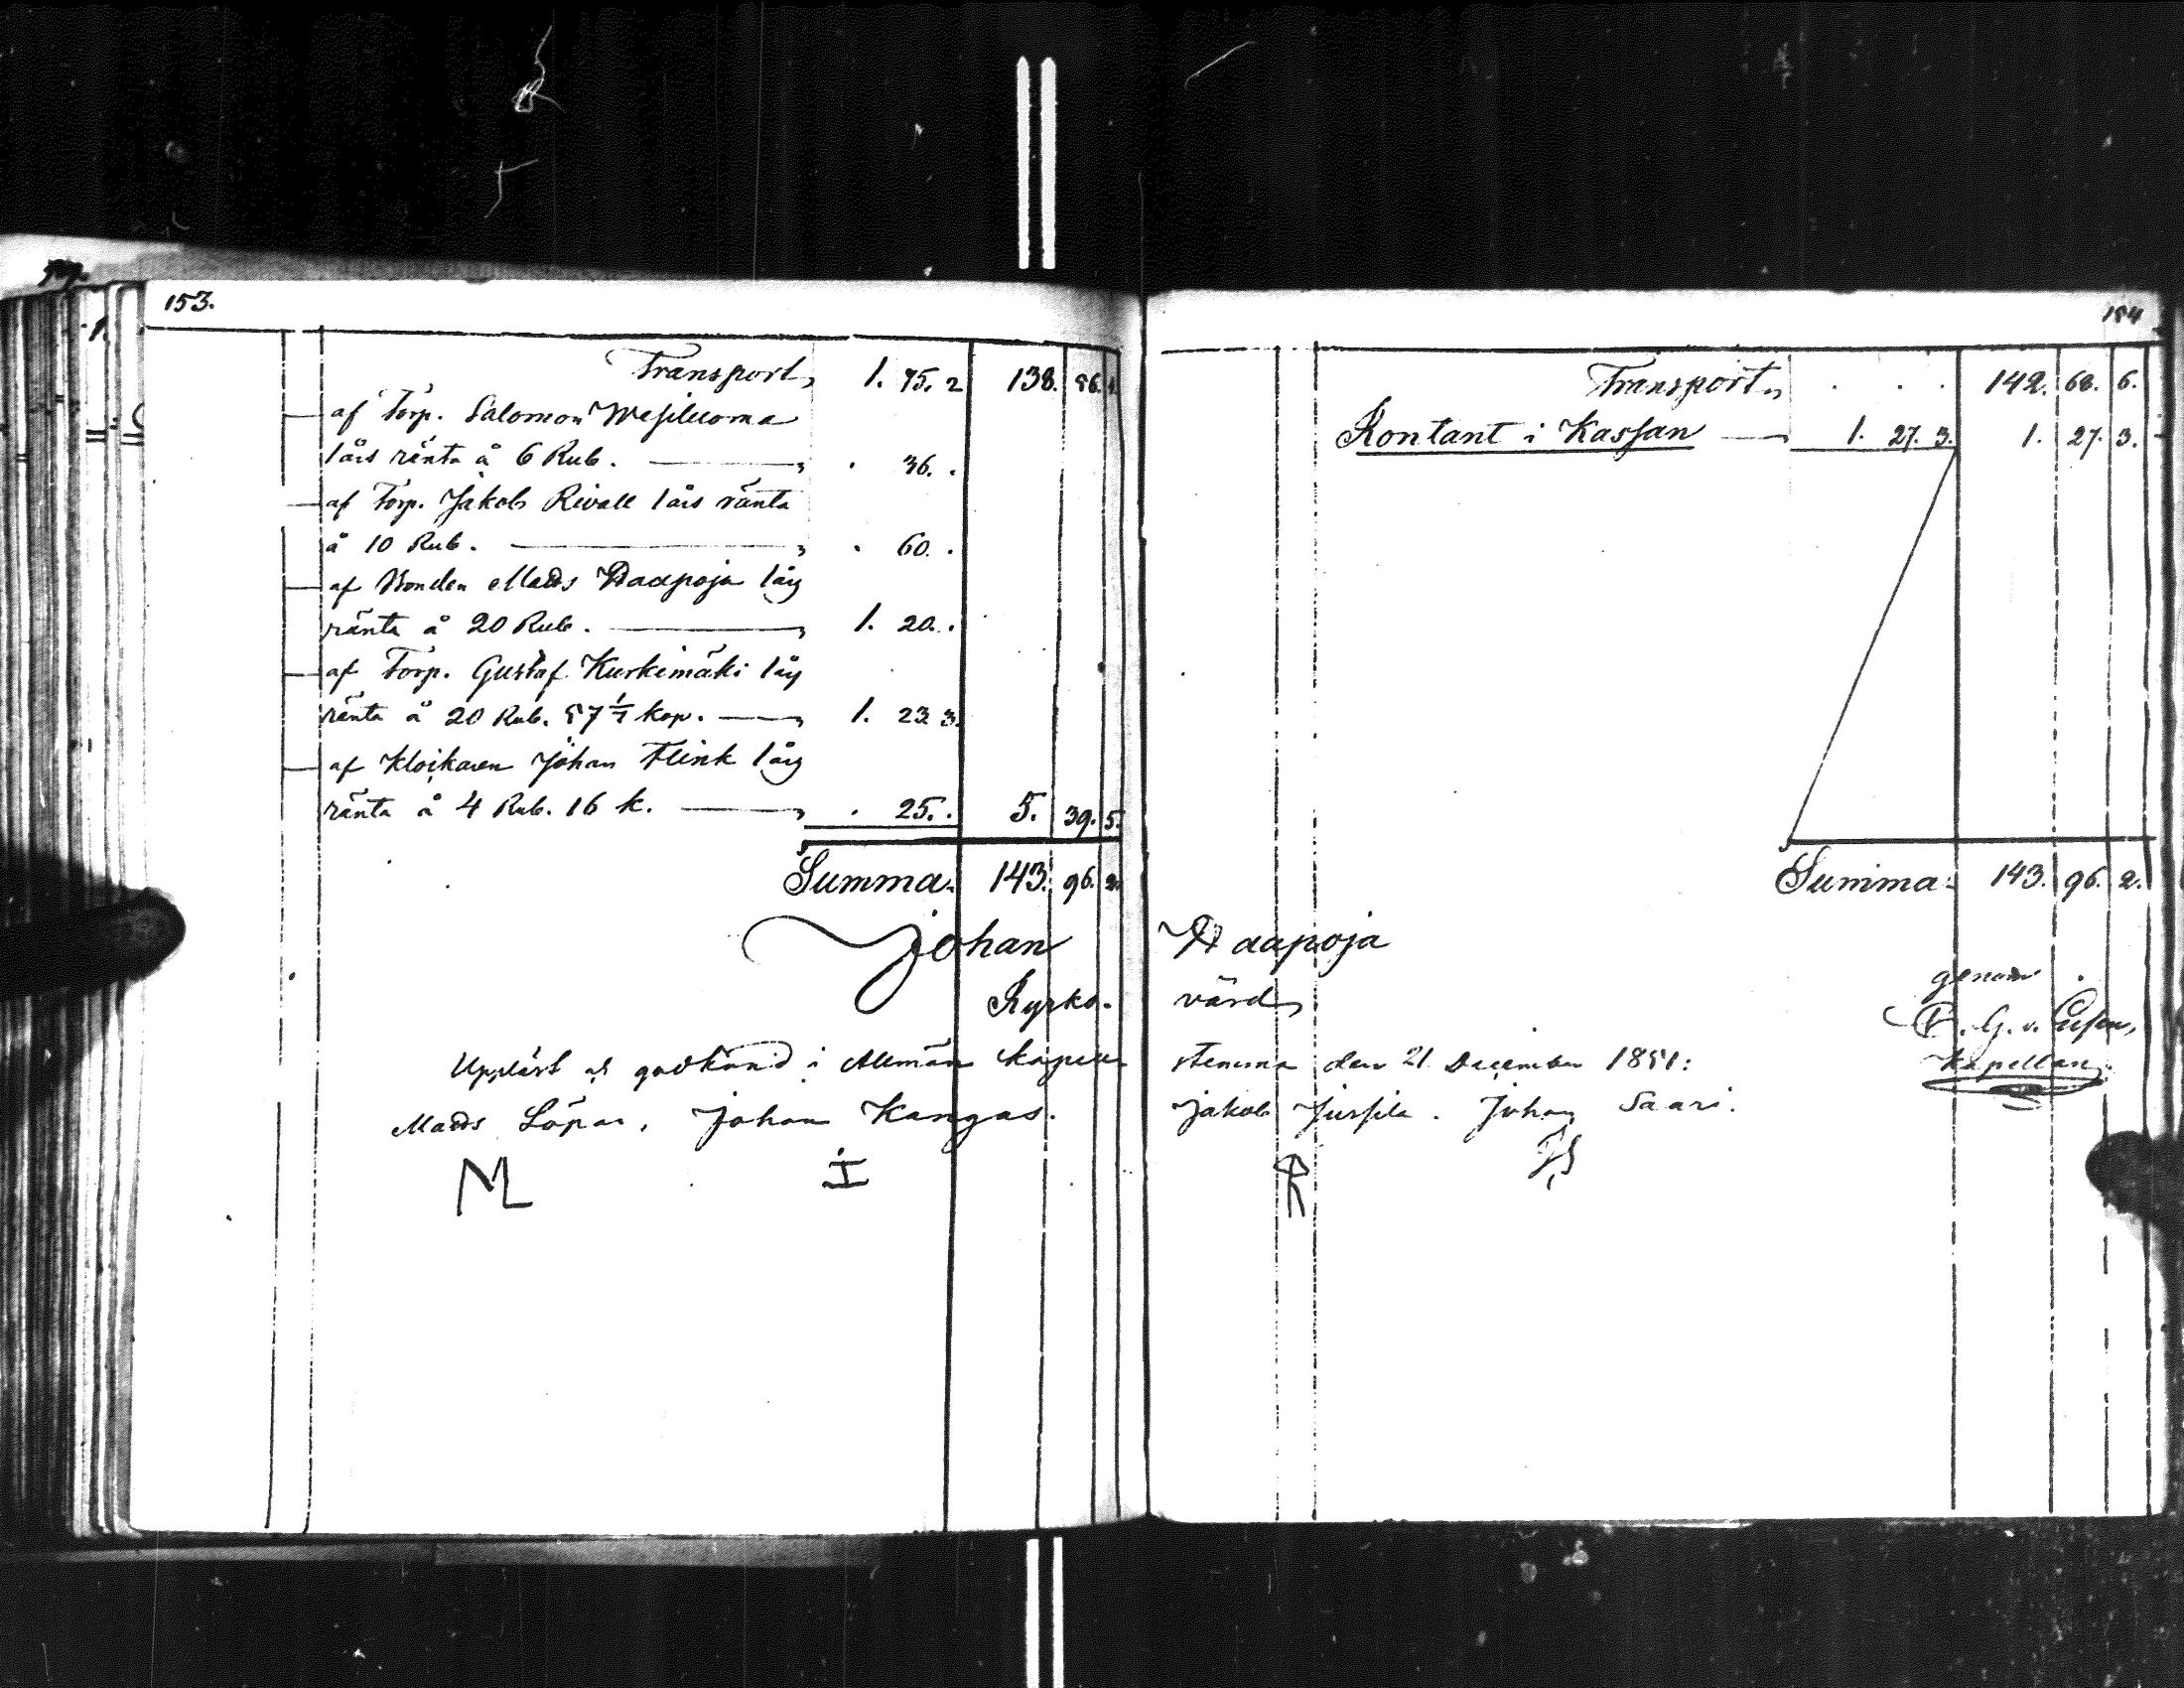 153.
Transport, 1. 75. 2 138. 56. 4.
af Torp. Salomon Wesiluoma
1 års ränta å 6 Rub. — , . 36. .
af Torp. Jakob Rivall 1 års ränta
å 10 Rub. — , . 60. .
af Bonden Matts Haapoja 1 års
ränta å 20 Rub. — , 1. 20. .
af Torp. Gustaf Kurkimäki 1 års
ränta å 20 Rub. 57 1/7 kop. — , 1. 23 3.
af Klockaren Johan Flink 1 års
ränta å 4 Rub. 16 k. — , . 25. . 5. 39. 5.
Summa. 143. 96. 2.
154
Transport, . . . 142. 68. 6.
Kontant i Kassan — , 1. 27. 3. 1. 27. 3.
Summa. 143. 96. 2.
Johan Haapoja
Kyrko- värd,
genom
G. v.
Kapellan.
Uppläst och godkänd i Allmän kapell stemma den 21 December 1851:
Matts Löpar, Johan Kangas. Jakob Jussila. Johan Saari.
ML I